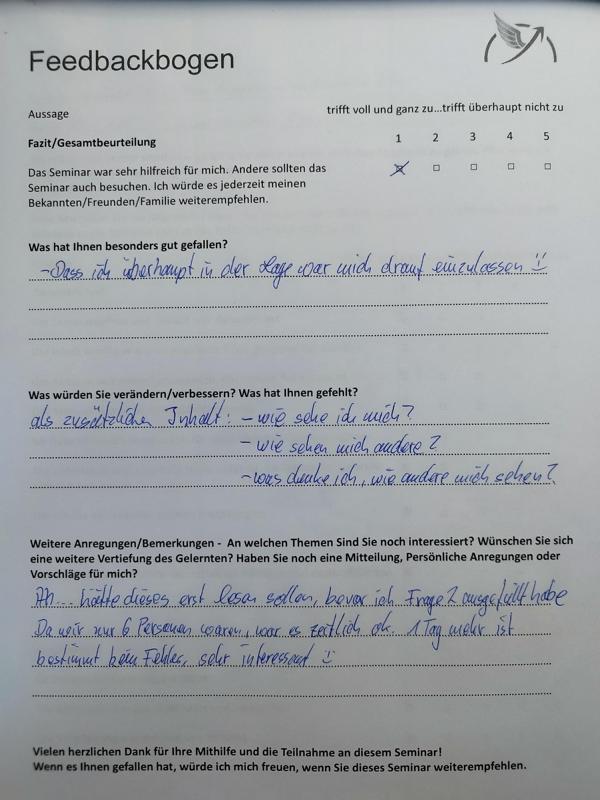 Feedbackbogen
Aussage
trifft voll und ganz zu...trifft überhaupt nicht zu
Fazit/Gesamtbeurteilung
1 2 3 4 5
Das Seminar war sehr hilfreich für mich. Andere sollten das
Seminar auch besuchen. Ich würde es jederzeit meinen
Bekannten/Freunden/Familie weiterempfehlen.
Was hat Ihnen besonders gut gefallen?
- Dass ich überhaupt in der Lage war mich drauf einzulassen
Was würden Sie verändern/verbessern? Was hat Ihnen gefehlt?
als zusätzlichen Inhalt: - wie sehe ich mich?
- wie sehen mich andere?
- was denke ich, wie andere mich sehen?
Weitere Anregungen/Bemerkungen - An welchen Themen Sind Sie noch interessiert? Wünschen Sie sich
eine weitere Vertiefung des Gelernten? Haben Sie noch eine Mitteilung, Persönliche Anregungen oder
Vorschläge für mich?
Ah... hätte dieses erst lesen sollen, bevor ich Frage 2 ausgefüllt habe
Da wir nur 6 Personen waren, war es zeitlich ok. 1 Tag mehr ist
bestimmt kein Fehler, sehr interessant
Vielen herzlichen Dank für Ihre Mithilfe und die Teilnahme an diesem Seminar!
Wenn es Ihnen gefallen hat, würde ich mich freuen, wenn Sie dieses Seminar weiterempfehlen.